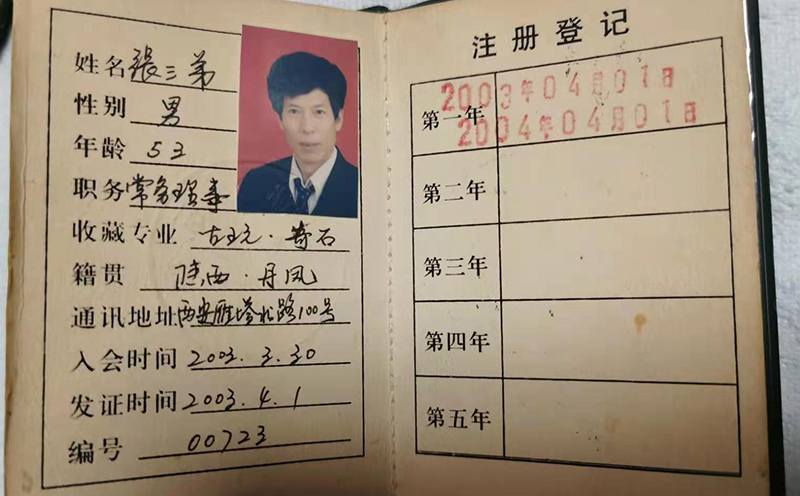 姓名 張三弟
性别 男
年龄 53
职务 常务理事
收藏专业 古玩·奇石
籍贯 陕西·丹凤
通讯地址 西安雁塔北路100号
入会时间 2003.3.30
发证时间 2003.4.1
编号 00723
注册登记
2003年04月01日
第一年
2004年04月01日
第二年
第三年
第四年
第五年